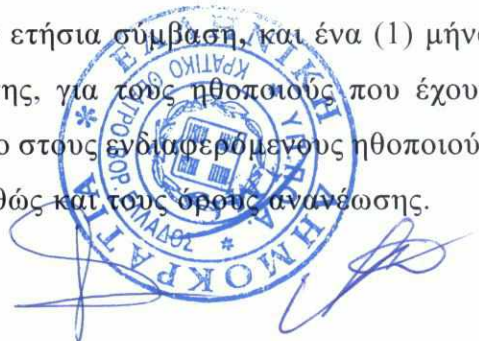 ετήσια σύμβαση, και ένα (1) μήνα
ης, για τους ηθοποιούς που έχου
ο στους ενδιαφερόμενους ηθοποιού
θώς και τους όρους ανανέωσης.
ΕΛΛΗΝΙΚΗ ΔΗΜΟΚΡΑΤΙΑ
ΚΡΑΤΙΚΟ ΘΕΑΤΡΟ ΒΟΡ. ΕΛΛΑΔΟΣ